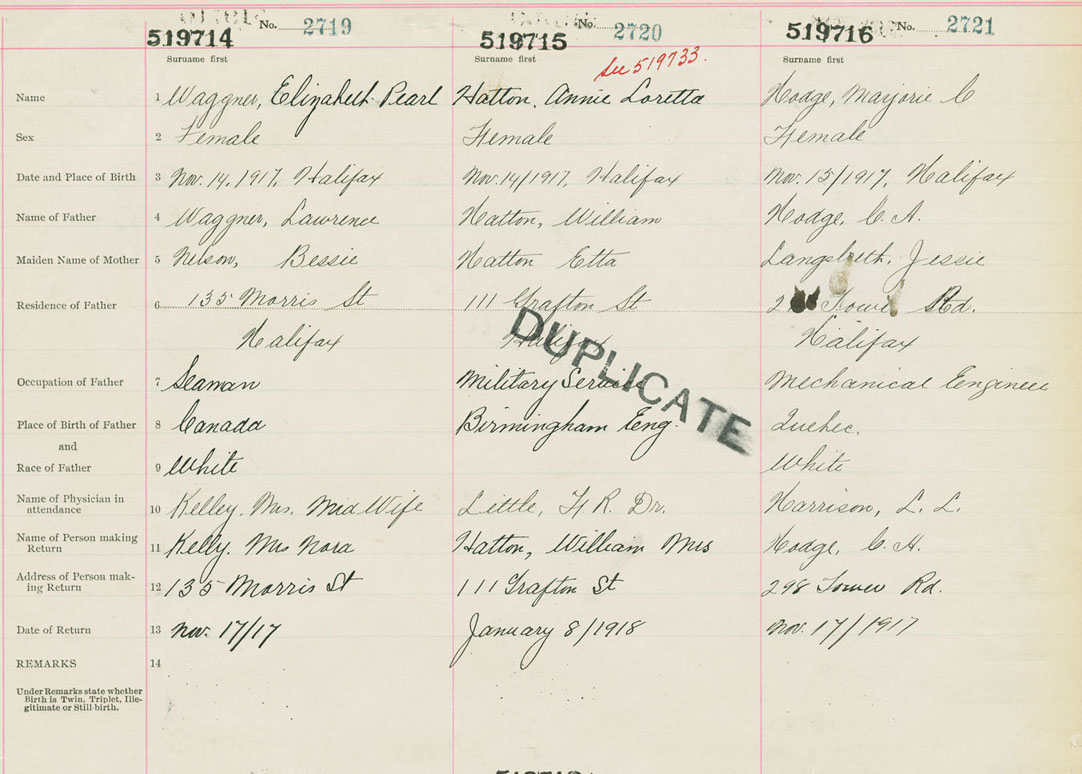 No. 2719 No. 2720 No. 2721
519714 519715 519716
Surname first Surname first Surname first
See 519733.
Name 1 Waggner, Elizabeth Pearl Hatton, Annie Loretta Hodge, Marjorie C
Sex 2 Female Female Female
Date and Place of Birth 3 Nov. 14, 1917, Halifax Nov. 14/1917, Halifax Nov. 15/1917, Halifax
Name of Father 4 Waggner, Lawrence Hatton, William Hodge, C. A.
Maiden Name of Mother 5 Nelson, Bessie Hatton Etta Jessie
Residence of Father 6 135 Morris St 111 Grafton St 2 Tower Rd.
Halifax Halifax Halifax
DUPLICATE
Occupation of Father 7 Seaman Military Service Mechanical Engineer
Place of Birth of Father 8 Canada Birmingham Eng. Quebec.
and
Race of Father 9 White White
Name of Physician in
attendance 10 Kelley, Mrs. MidWife Little, F R. Dr. Harrison, L. L.
Name of Person making
Return 11 Kelly. Mrs Nora Hatton, William Mrs Hodge, C. A.
Address of Person mak-
ing Return 12 135 Morris St 111 Grafton St 298 Tower Rd.
Date of Return 13 Nov. 17/17 January 8/1918 Nov. 17/1917
REMARKS 14
Under Remarks state whether
Birth is Twin, Triplet, Ille-
gitimate or Still-birth.